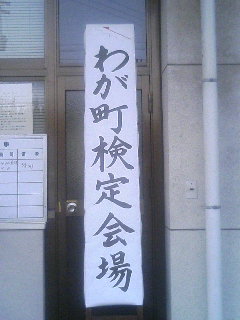 わが町検定会場